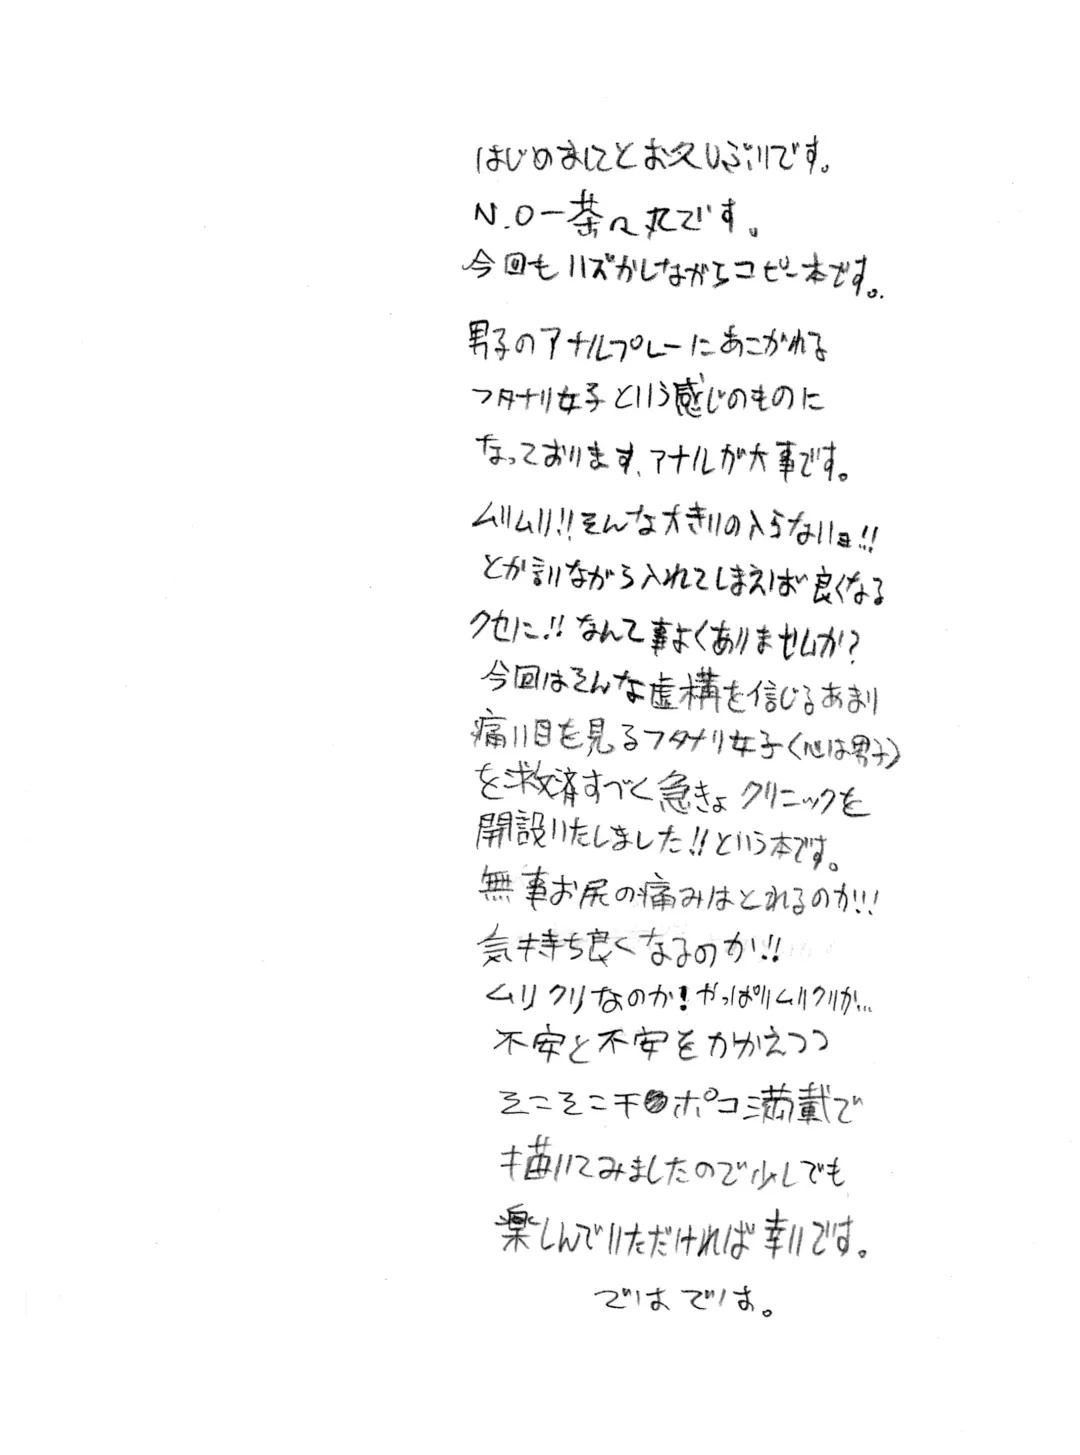 はじめましてとお久しぶりです。
N.O－茶々丸です。
今回もハズかしながらコピー本です。
男子のアナルプレーにあこがれる
フタナリ女子という感じのものに
なっております、アナルが大事です。
ムリムリ!!そんな大きいの入らない目!!
とか言いながら入れてしまえば良くなる
クセに!!なんて事よくありませんか?
今回はそんな虚構を信じるあまり
痛い目を見るフタナリ女子(心は男子)
を救済すづく急きょクリニックを
開設いたしました!!という本です。
無事お尻の痛みはとれるのか!!!
気持ち良くなるのか!!
ムリクリなのか!やっぱりムリクリか…
不安と不安をかかえつつ
そこそこチ●ポコ満載で
描いてみましたので少しでも
楽しんでいただければ幸いです。
ではでは。